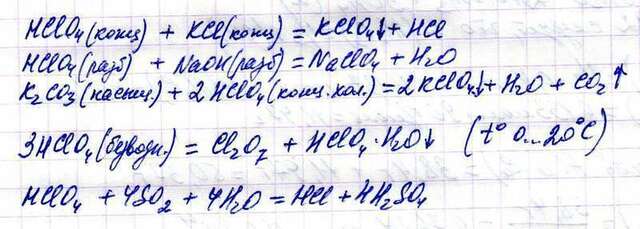 HClO₄(конц) + KCl(конц) = KClO₄↓ + HCl
HClO₄(разб) + NaOH(разб) = NaClO₄ + H₂O
K₂CO₃(насыщ.) + 2HClO₄(конц.хол.) = 2KClO₄↓ + H₂O + CO₂↑
3HClO₄(безводн.) = Cl₂O₇ + HClO₄·H₂O↓ (t° 0...20°C)
HClO₄ + 4SO₂ + 4H₂O = HCl + 4H₂SO₄